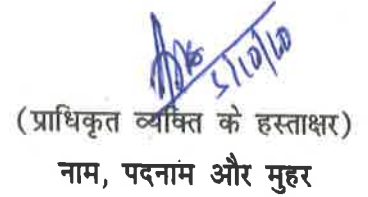 5/10/20
(प्राधिकृत व्यक्ति के हस्ताक्षर)
नाम, पदनाम और मुहर